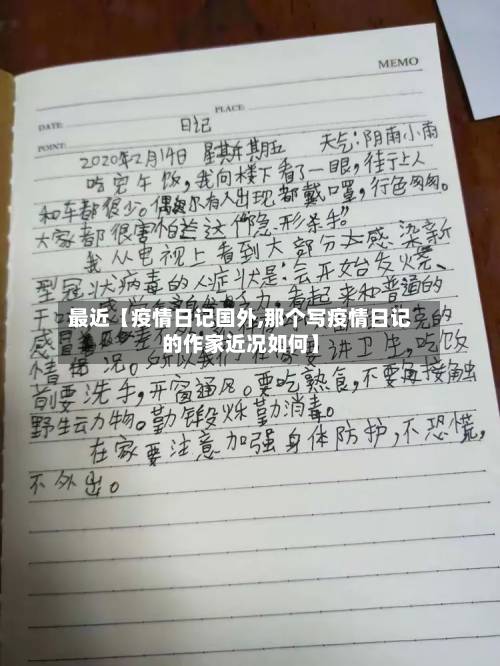 MEMO
DATE:
PLACE:
POINT:
日记
2020年2月14日 星期五 天气:阴雨小雨
吃完午饭,我向楼下看了一眼,街上人
和车都很少。偶尔有人出现都戴口罩,行色匆匆。
大家都很害怕这个"隐形杀手"。
我从电视上看到大部分感染新
型冠状病毒的人症状是:会开始发烧、
干 力。看起来和普通的
感冒
最近【疫情日记国外,那个写疫情日记
的作家近况如何】
情 况。所以我们 要讲卫生,吃饭
前要洗手,开窗通风。要吃熟食,不要接触
野生动物。勤锻炼勤消毒。
在家要注意加强身体防护,不恐慌,
不外出。